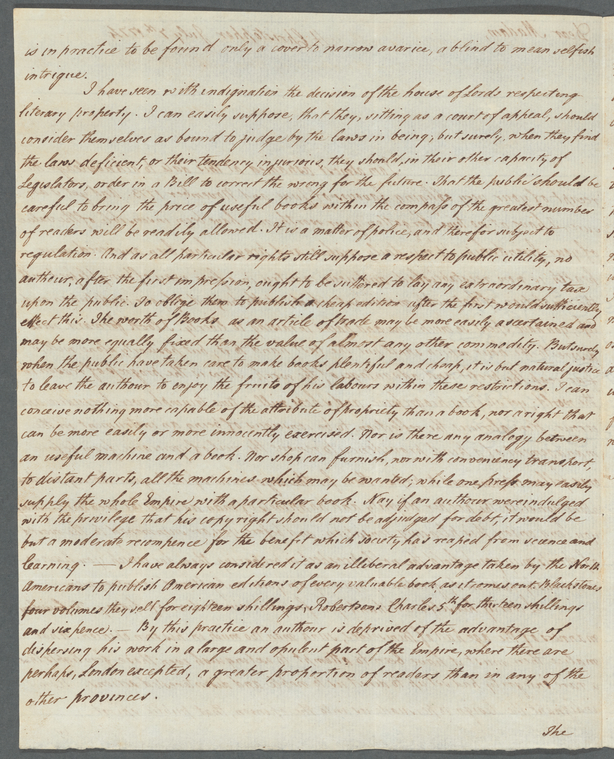 is in practice to be found only a cover to narrow avarice, a blind to mean selfish
intrigue.
I have seen with indignation the decision of the house of Lords respecting
literary property. I can easily suppose, that they, sitting as a court of appeal, should
consider themselves as bound to judge by the laws in being; but surely, when they find
the laws deficient, or their tendency injurious, they should, in their other capacity of
Legislators, order in a Bill to correct the wrong for the future. That the public should be
careful to bring the price of useful books within the compass of the greatest number
of readers will be readily allowed. It is a matter of police, and therefor subject to
regulation. And as all particular rights still suppose a respect to public utility, no
autheur, after the first impression, ought to be suffered to lay any extraordinary tax
upon the public. To oblige them to publish a cheap edition after the first would sufficiently
effect this. The worth of Books as an article of trade may be more easily ascertained and
may be more equally fixed than the value of almost any other commodity. But surely
when the public have taken care to make books plentiful and cheap, it is but natural justice
to leave the authour to enjoy the fruits of his labours within these restrictions. I can
conceive nothing more capable of the attribute of propriety than a book, nor a right that
can be more easily or more innocently exercised. Nor is there any analogy between
an useful machine and a book. Nor shop can furnish, nor with conveniency transport,
to distant parts, all the machines which may be wanted; while one press may easily
supply the whole Empire with a particular book. Nay if an authour were indulged
with the privilege that his copy right should not be adjudged for debt, it would be
but a moderate recompence for the benefit which society has reaped from science and
learning. — I have always considered it as an illiberal advantage taken by the North
Americans to publish American editions of every valuable book as it comes out. Blackstones
four volumes they sell for eighteen shillings; Robertsons Charles 5th for thirteen shillings
and sixpence. — By this practice an authour is deprived of the advantage of
dispersing his work in a large and opulent part of the Empire, where there are
perhaps, London excepted, a greater proportion of readers than in any of the
other provinces.
The